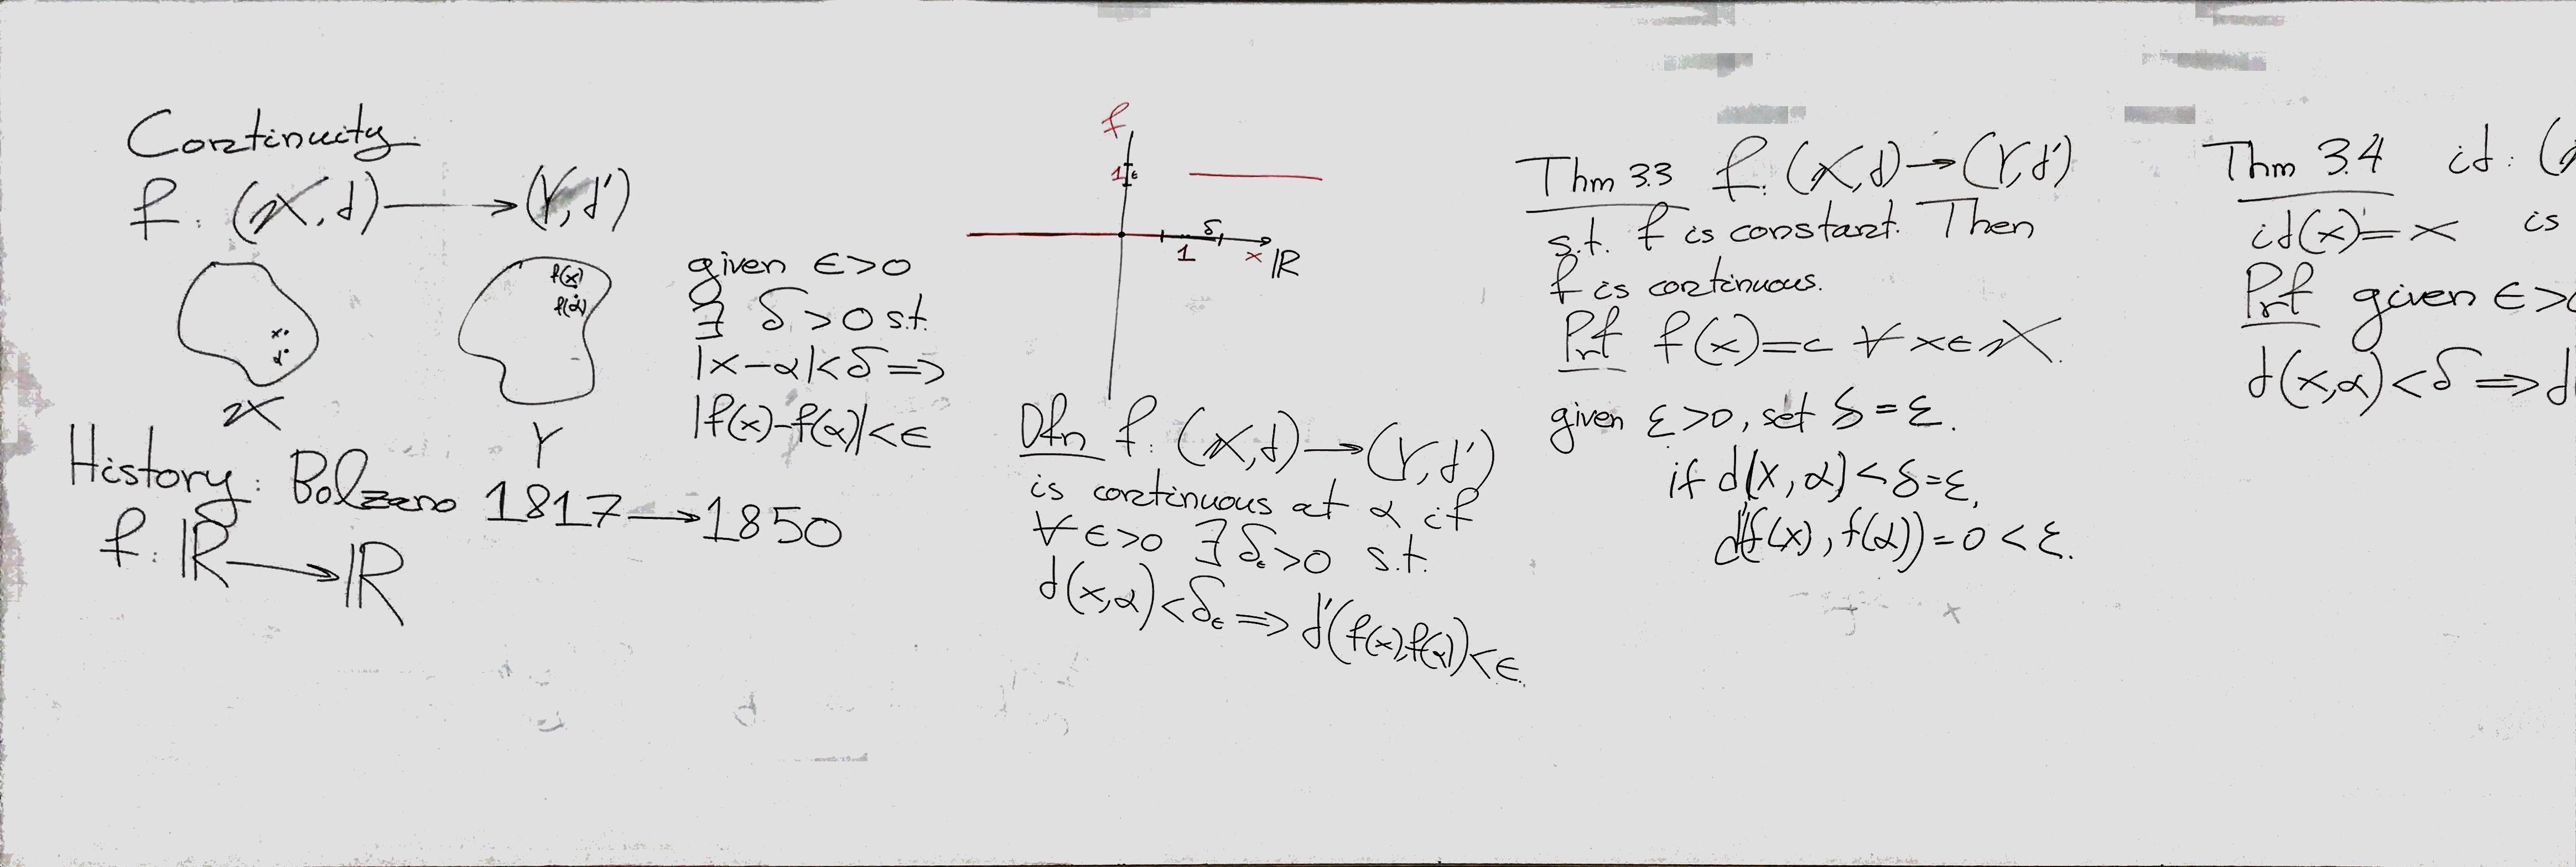 Continuity
f: (X,d) → (Y,d')
x
α
X
f(x)
f(α)
Y
given ϵ>0
∃ δ>0 s.t.
|x-α|<δ ⇒
|f(x)-f(α)|<ϵ
History: Bolzano 1817 → 1850
f: ℝ → ℝ
f
1 ϵ
δ
1 x ℝ
Dfn f: (X,d) → (Y,d')
is continuous at α if
∀ ϵ>0 ∃ δϵ>0 s.t.
d(x,α)<δϵ ⇒ d'(f(x),f(α))<ϵ.
Thm 3.3 f: (X,d) → (Y,d')
s.t. f is constant. Then
f is continuous.
Prf f(x)=c ∀ x∈X.
given ε>0, set δ=ε.
if d(x,α)<δ=ε,
d'(f(x), f(α))=0<ε.
Thm 3.4 id: (
id(x)=x is
Prf given ϵ>
d(x,α)<δ ⇒ d